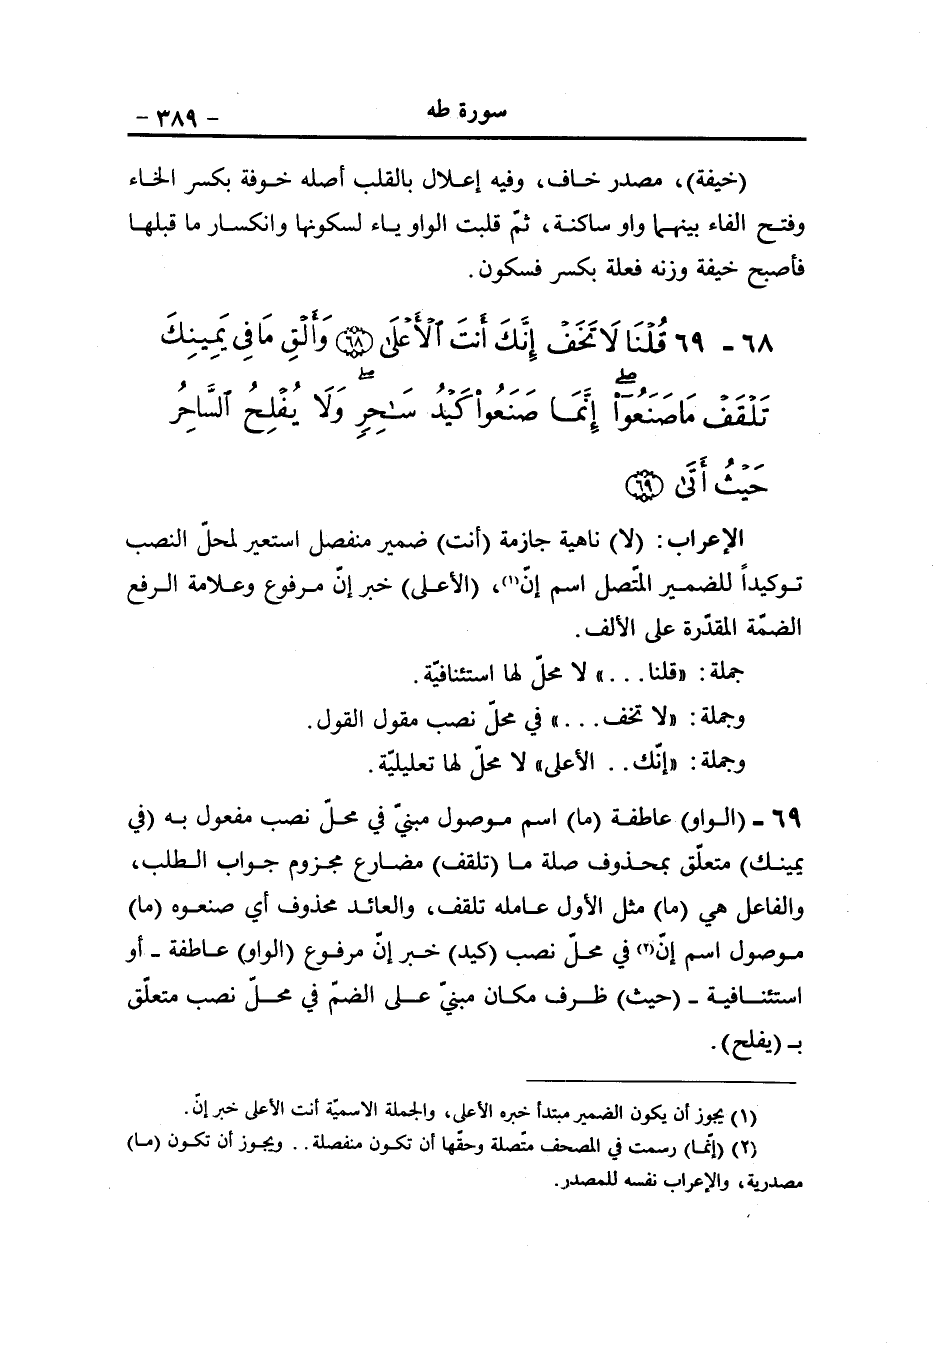 سورة طه
- ٣٨٩ -
(خيفة)، مصدر خاف، وفيه إعلال بالقلب أصله خوفة بكسر الخاء
وفتح الفاء بينهما واو ساكنة، ثمّ قلبت الواو ياء لسكونها وانكسار ما قبلها
فأصبح خيفة وزنه فعلة بكسر فسكون.
٦٨ - ٦٩ قُلْنَا لَا تَخَفْ إِنَّكَ أَنتَ ٱلْأَعْلَىٰ ﴿٦٨﴾ وَأَلْقِ مَا فِي يَمِينِكَ
تَلْقَفْ مَا صَنَعُوٓا۟ ۖ إِنَّمَا صَنَعُوا۟ كَيْدُ سَـٰحِرٍ ۖ وَلَا يُفْلِحُ ٱلسَّاحِرُ
حَيْثُ أَتَىٰ ﴿٦٩﴾
الإعراب: (لا) ناهية جازمة (أنت) ضمير منفصل استعير لمحلّ النصب
توكيداً للضمير المتّصل اسم إنّ(١)، (الأعلى) خبر إنّ مرفوع وعلامة الرفع
الضمّة المقدّرة على الألف.
جملة: «قلنا...» لا محلّ لها استئنافيّة.
وجملة: «لا تخف...» في محلّ نصب مقول القول.
وجملة: «إنّك.. الأعلى» لا محلّ لها تعليليّة.
٦٩ - (الواو) عاطفة (ما) اسم موصول مبنيّ في محلّ نصب مفعول به (في
يمينك) متعلّق بمحذوف صلة ما (تلقف) مضارع مجزوم جواب الطلب،
والفاعل هي (ما) مثل الأول عامله تلقف، والعائد محذوف أي صنعوه (ما)
موصول اسم إنّ(٢) في محلّ نصب (كيد) خبر إنّ مرفوع (الواو) عاطفة - أو
استئنافية - (حيث) ظرف مكان مبنيّ على الضمّ في محلّ نصب متعلّق
بـ (يفلح).
(١) يجوز أن يكون الضمير مبتدأ خبره الأعلى، والجملة الاسميّة أنت الأعلى خبر إنّ.
(٢) (إنّما) رسمت في المصحف متّصلة وحقّها أن تكون منفصلة.. ويجوز أن تكون (ما)
مصدرية، والإعراب نفسه للمصدر.